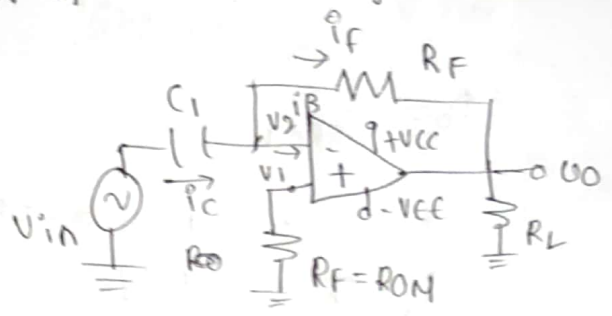 iF
RF
C1
V2 iB
+VCC
V1
-
+
UO
iC
-VEE
Uin
RL
RF = ROM